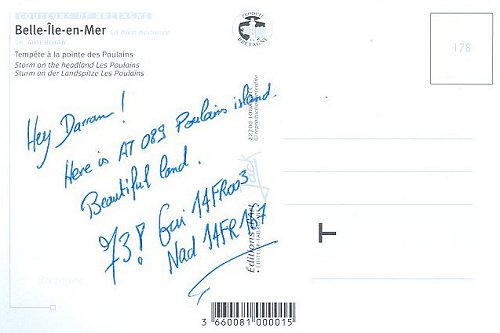 COULEURS DE BRETAGNE
Belle-Île-en-Mer
Tempête à la pointe des Poulains
Storm on the headland Les Poulains
Sturm an der Landspitze Les Poulains
BRETAGNE
178
Hey Darran!
Here is AT 089 Poulains island.
Beautiful land.
73! Gui 14FR003
Nad 14FR167
Editions d'Art
3 660081 000015